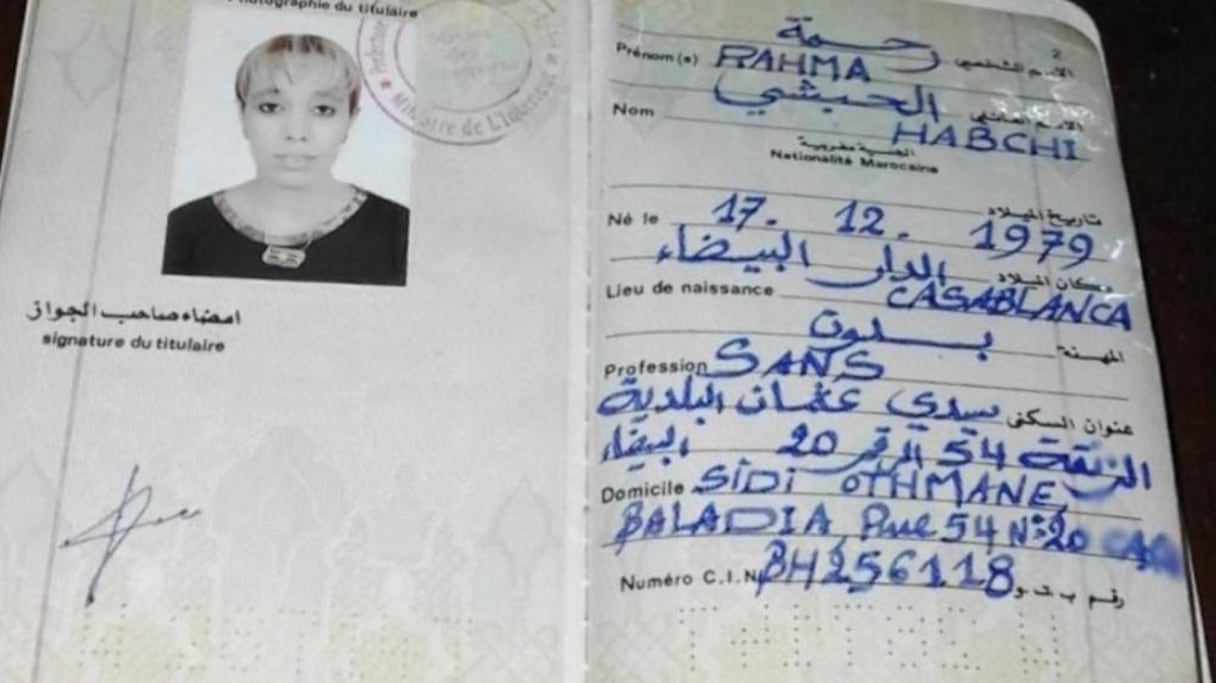 Photographie du titulaire
Ministère de L'Intérieur
امضاء صاحب الجواز
signature du titulaire
2
رحمة الاسم الشخصي
Prénom(s) RAHMA
الحبشي الاسم العائلي
Nom HABCHI
الجنسية مغربية
Nationalité Marocaine
تاريخ الميلاد
Né le 17. 12. 1979
الدار البيضاء مكان الميلاد
Lieu de naissance CASABLANCA
بدون المهنة
Profession SANS
عنوان السكنى سيدي عثمان البلدية
الزنقة 54 الرقم 20 البيضاء
Domicile SIDI OTHMANE,
BALADIA, Rue 54 N:20
Numéro C.I.N BH256118 رقم ب.ت.و